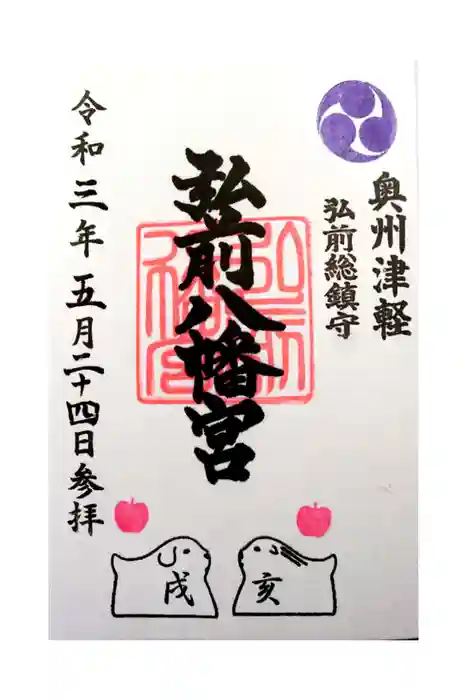 奥州津軽
弘前総鎮守
弘前八幡宮
令和三年五月二十四日参拝
戌
亥